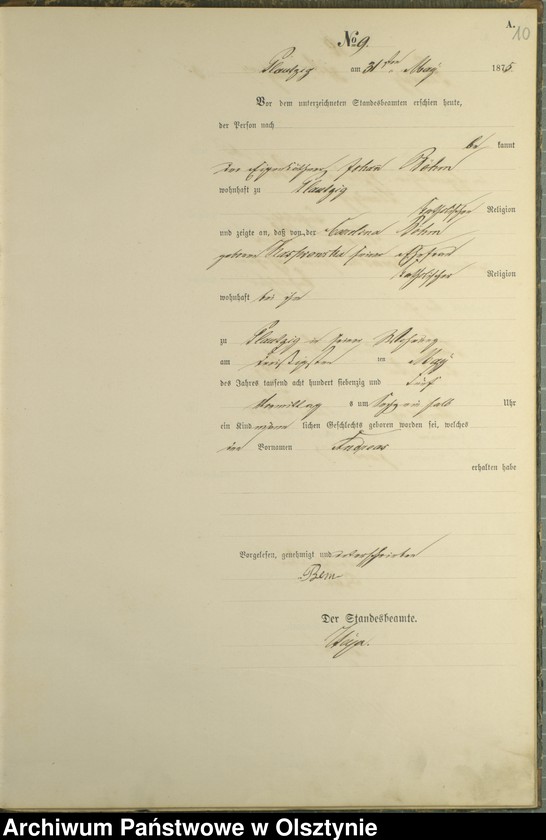 A.
10
No 9.
Plautzig am 31ten May 1875
Vor dem unterzeichneten Standesbeamten erschien heute,
der Person nach
be kannt
der Eigenkäthner Johan Böhm
wohnhaft zu Plautzig
katholischer Religion
und zeigte an, daß von der Carolina Böhm
geborene seiner Ehefrau
katholischer Religion
wohnhaft bei ihm
zu Plautzig in seiner Wohnung
am dreißigsten ten May
des Jahres tausend acht hundert siebenzig und fünf
Vormittag s um halb Uhr
ein Kind männ lichen Geschlechts geboren worden sei, welches
den Vornamen Andreas
erhalten habe
Vorgelesen, genehmigt und unterschrieben
Bem
Der Standesbeamte.
Archiwum Państwowe w Olsztynie